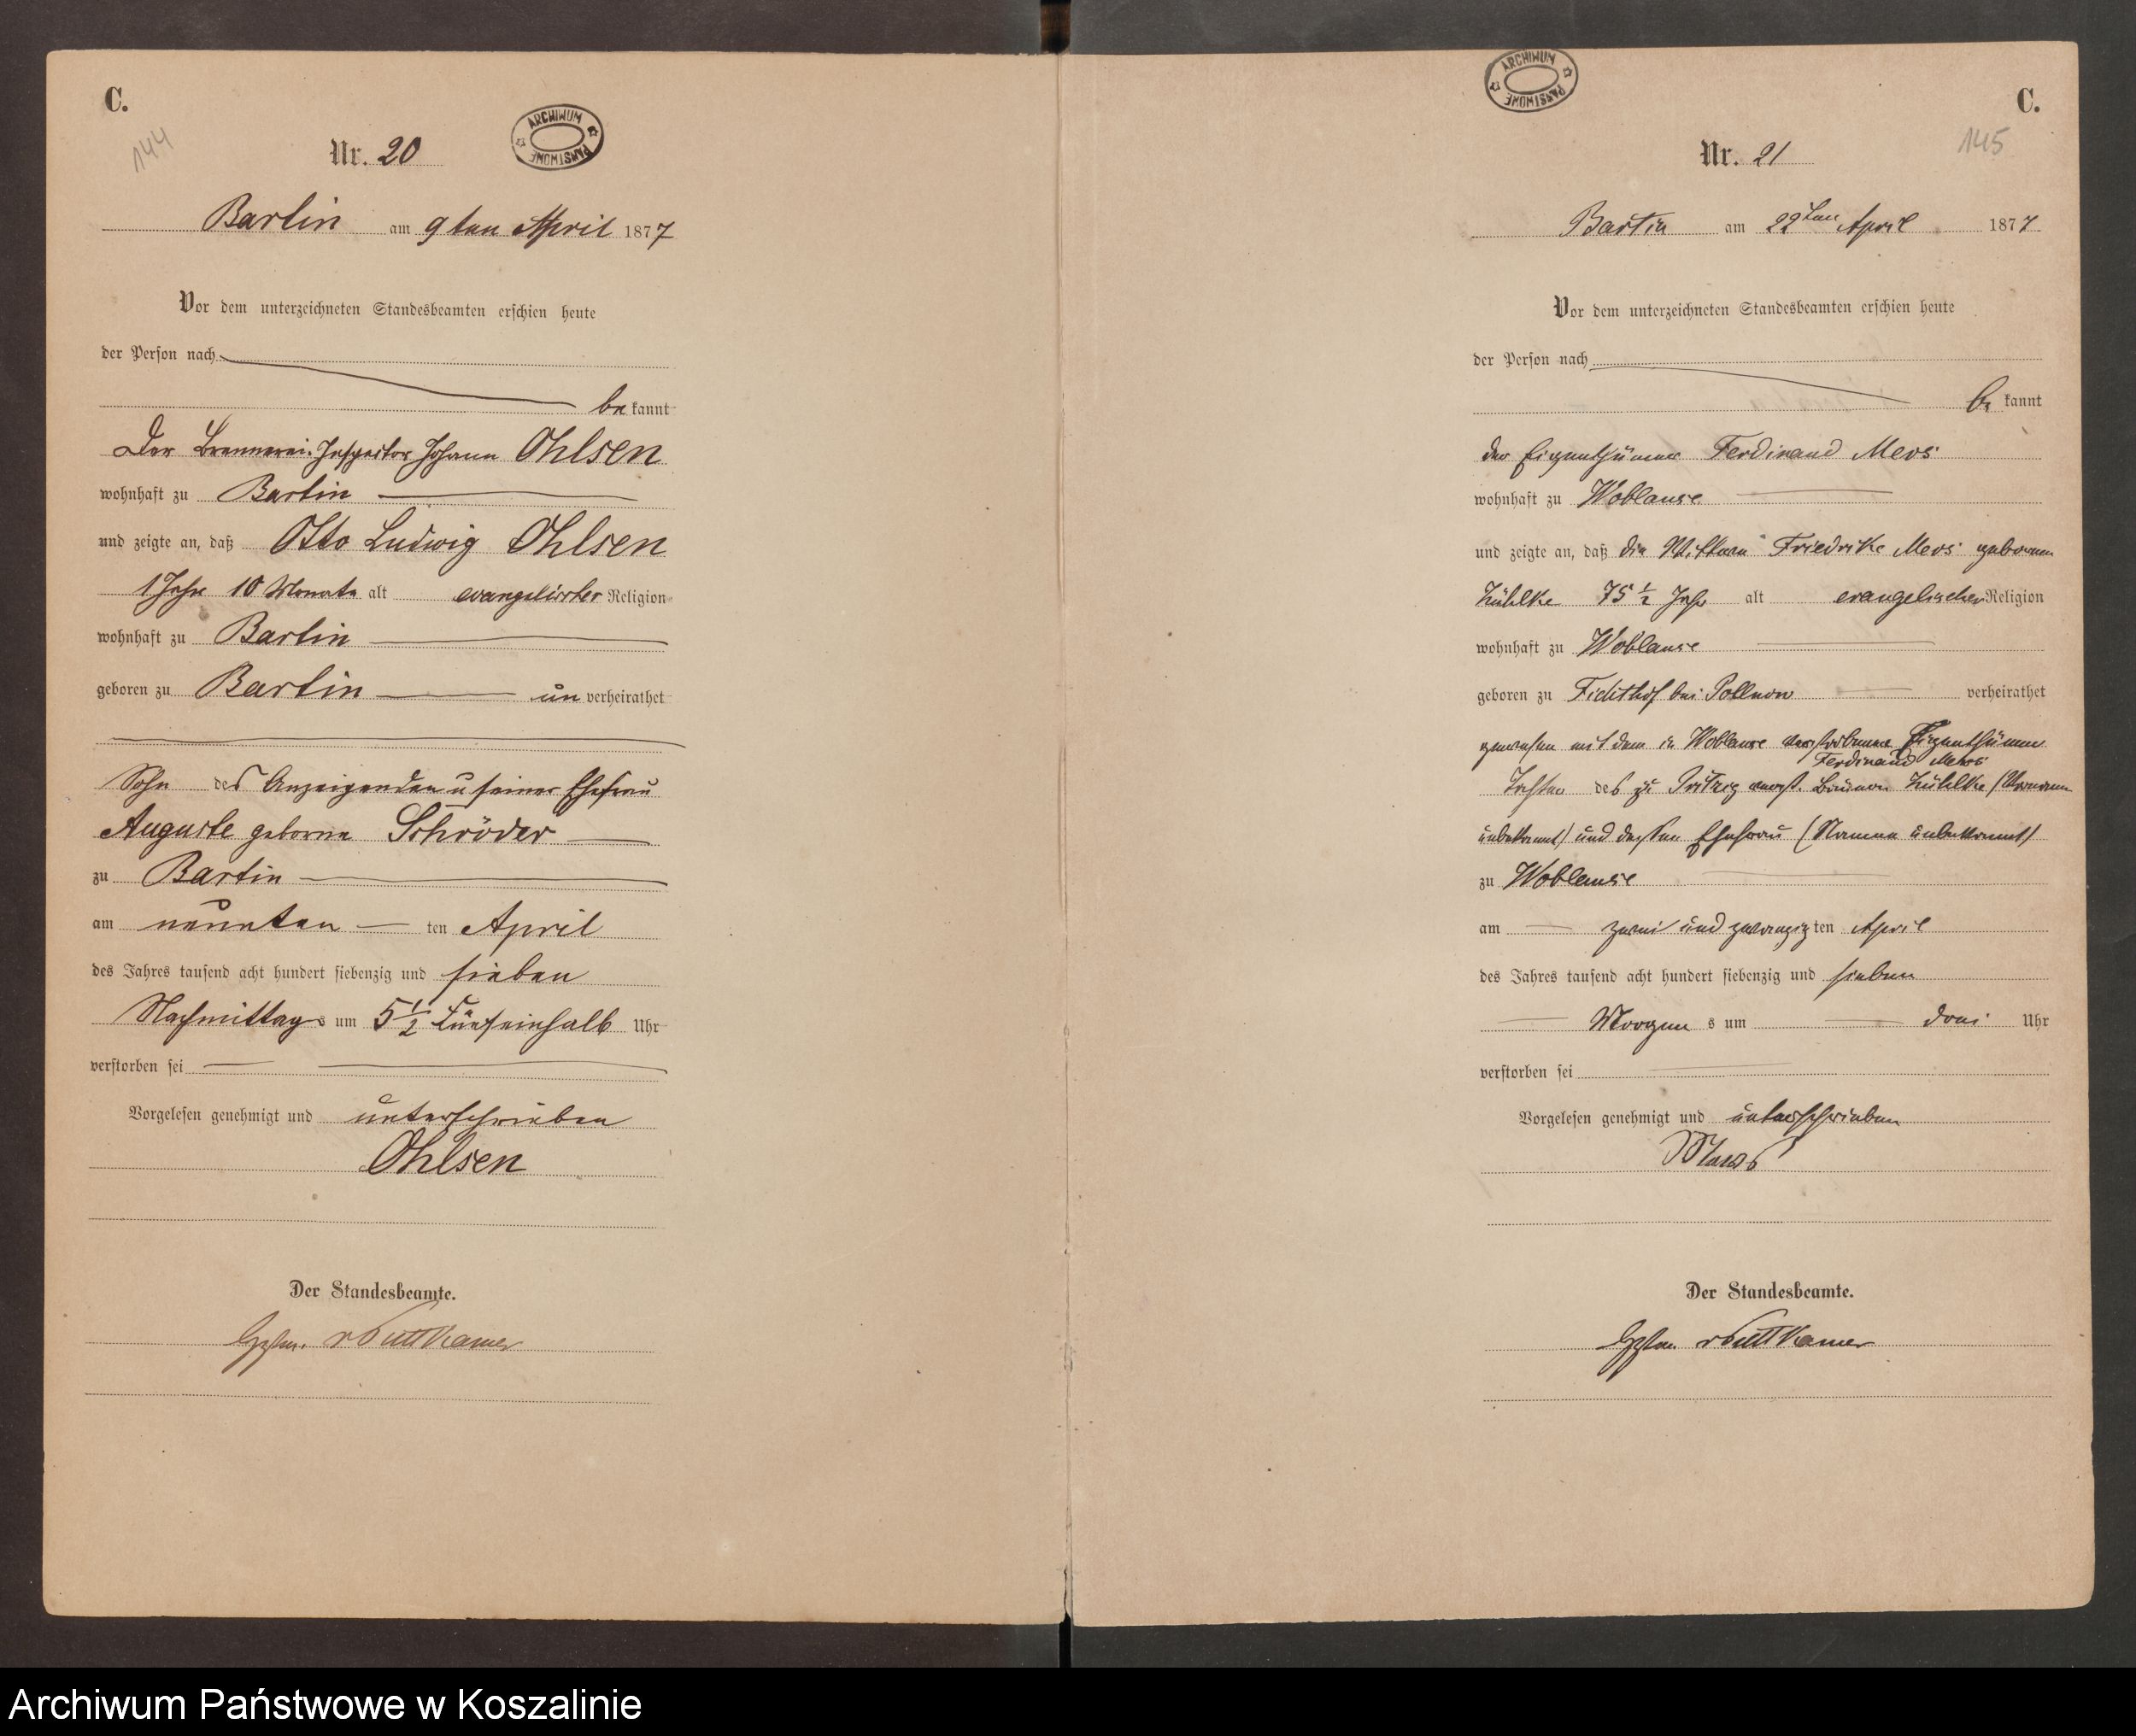 C.
144
ARCHIWUM PAŃSTWOWE
Nr. 20
Bartin am 9ten April 1877
Vor dem unterzeichneten Standesbeamten erschien heute
der Person nach
be kannt
Der Brennerei-Inspector Johann Ohlsen
wohnhaft zu Bartin
und zeigte an, daß Otto Ludwig Ohlsen
1 Jahr 10 Monate alt evangelischer Religion
wohnhaft zu Bartin
geboren zu Bartin un verheirathet
Sohn des Anzeigenden u seiner Ehefrau
Auguste geborne Schröder
zu Bartin
am neunten ten April
des Jahres tausend acht hundert siebenzig und sieben
Nachmittag s um 5½ Fünfeinhalb Uhr
verstorben sei
Vorgelesen genehmigt und unterschrieben
Ohlsen
Der Standesbeamte.
v Puttkamer
C.
145
ARCHIWUM PAŃSTWOWE
Nr. 21
Bartin am 22ten April 1877
Vor dem unterzeichneten Standesbeamten erschien heute
der Person nach
be kannt
der Eigenthümer Ferdinand Mews
wohnhaft zu Woblanse
und zeigte an, daß die Wittwe Friedrike Mews geborene
Kühlke 75½ Jahr alt evangelischer Religion
wohnhaft zu Woblanse
geboren zu bei Pollnow verheirathet
gewesen mit dem in Woblanse verstorbenen Eigenthümer
Ferdinand Mews
Tochter des zu verst. Kühlke (Vornamen
unbekannt) und dessen Ehefrau (Namen unbekannt)
zu Woblanse
am zwei und zwanzig ten April
des Jahres tausend acht hundert siebenzig und sieben
Morgen s um drei Uhr
verstorben sei
Vorgelesen genehmigt und unterschrieben
Mews
Der Standesbeamte.
v Puttkamer
Archiwum Państwowe w Koszalinie